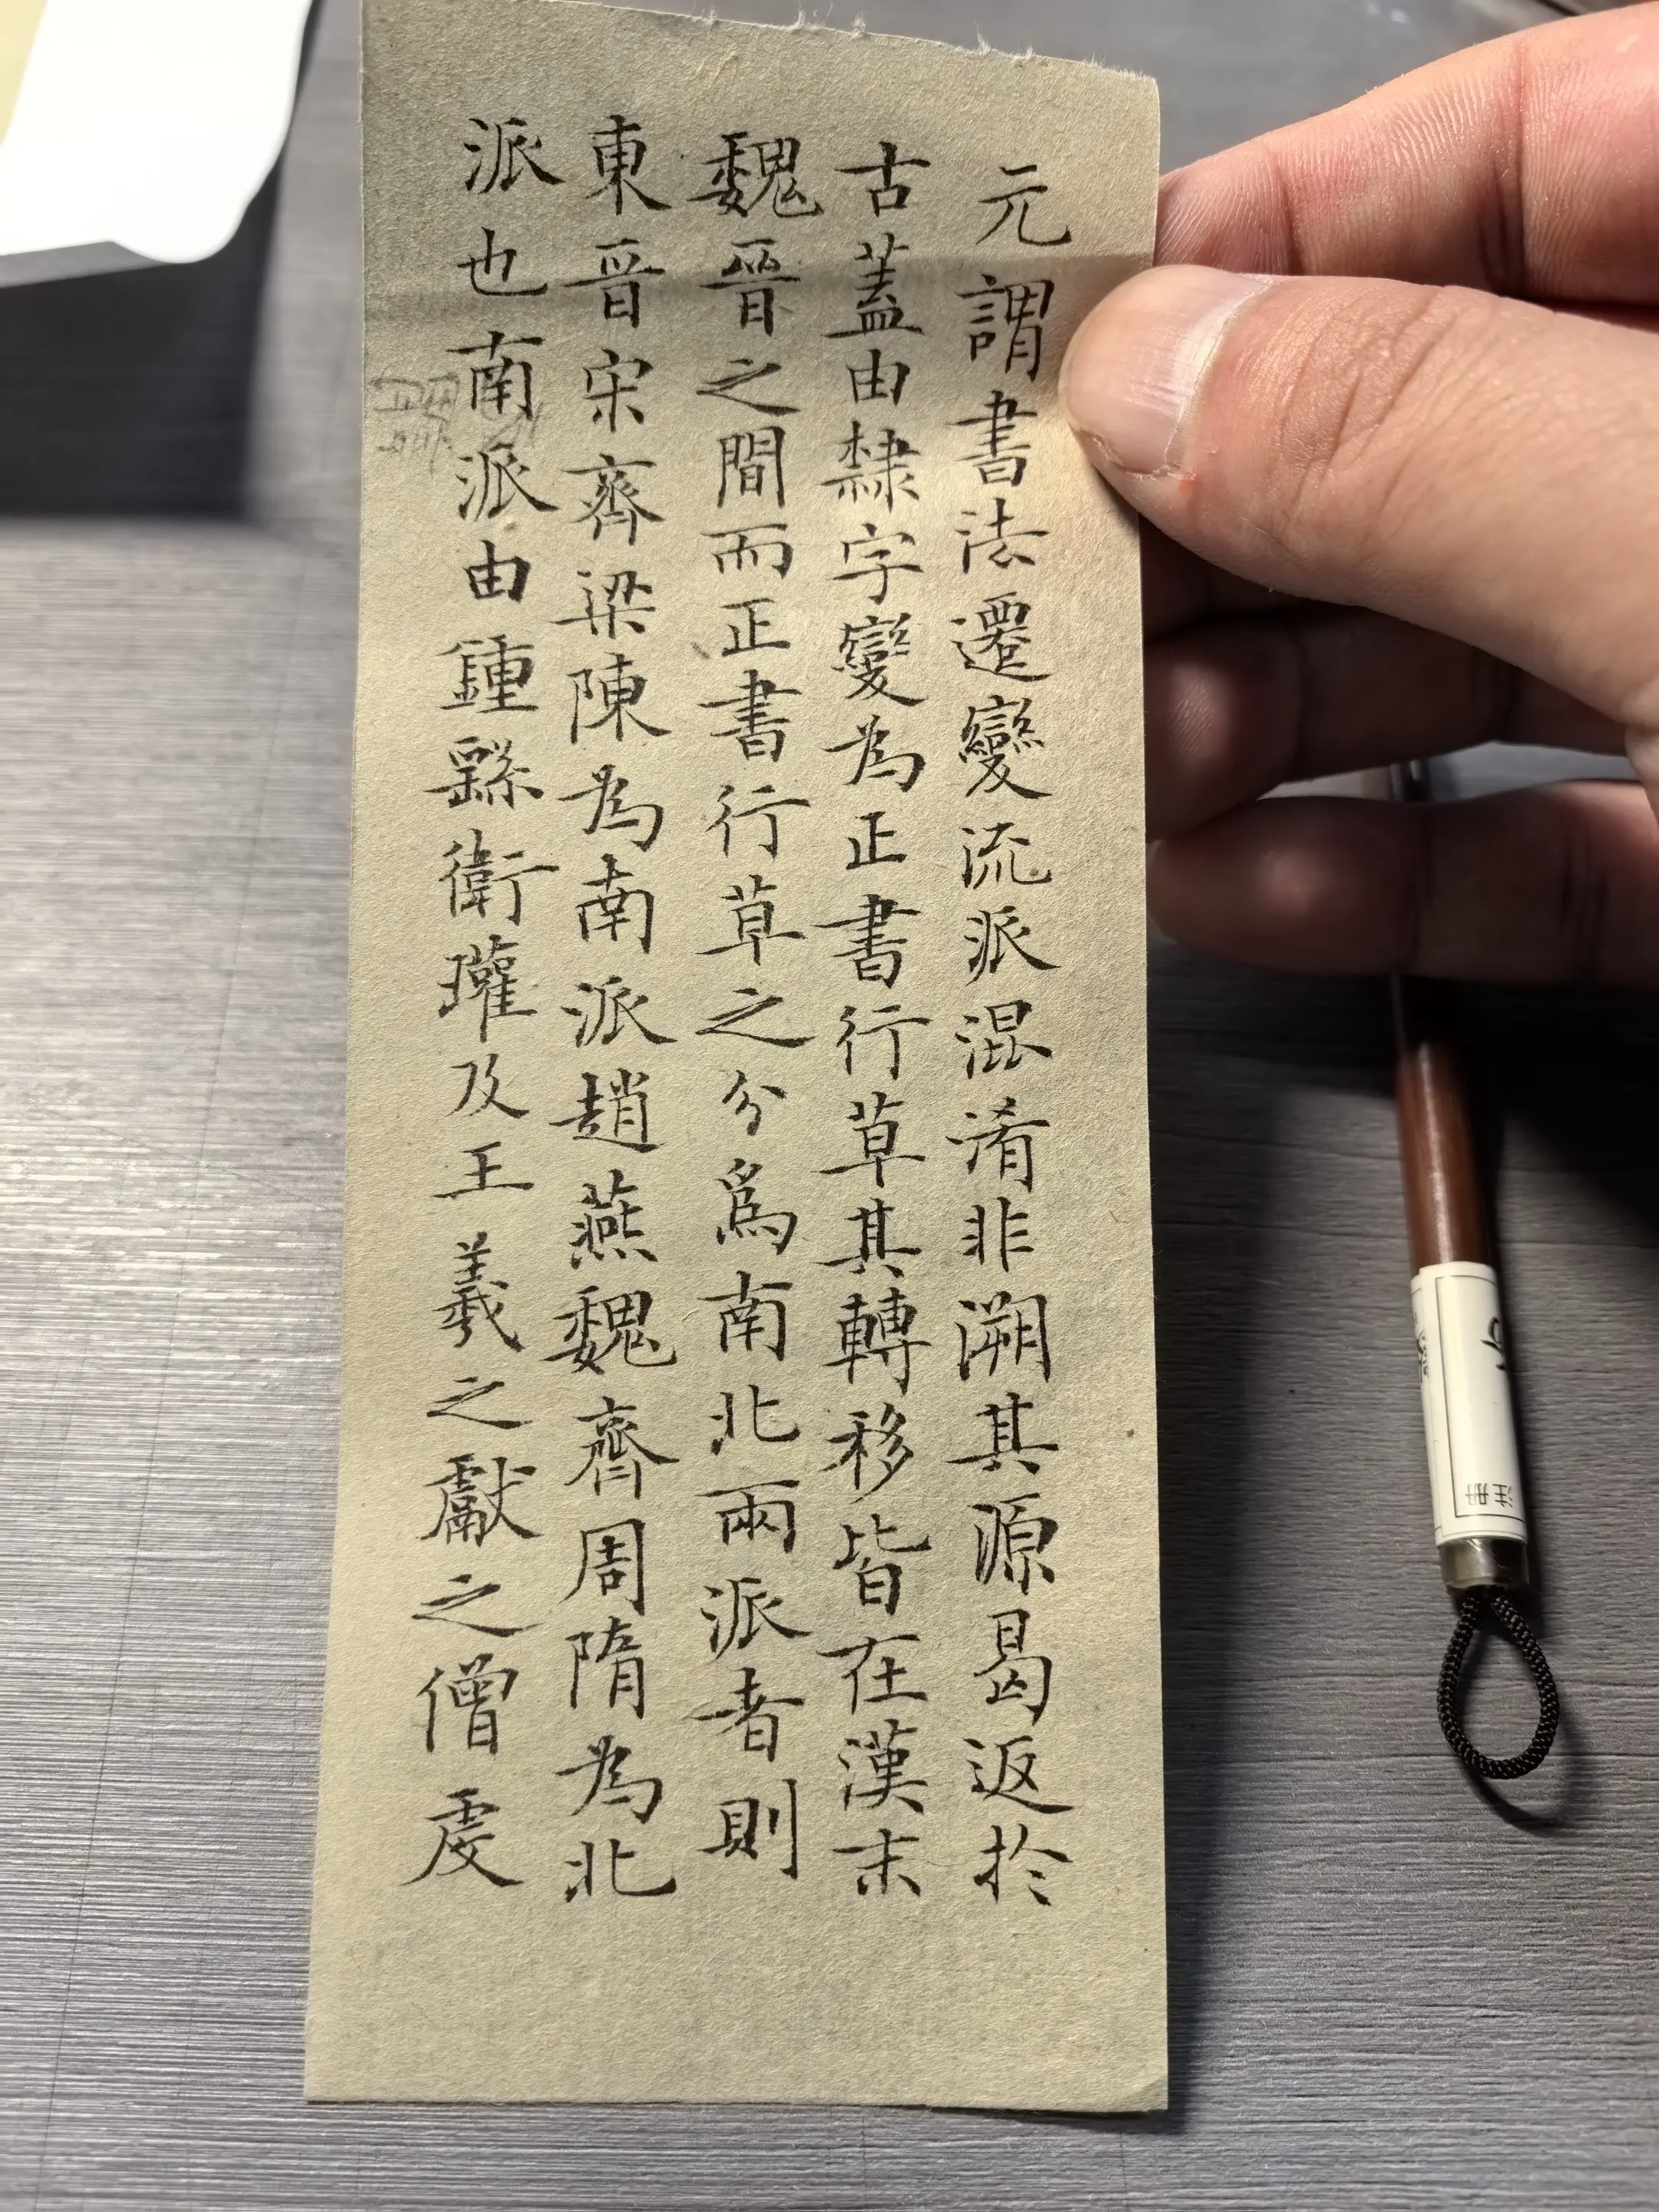 元謂書法遷變流派混淆非溯其源曷返於
古蓋由隸字變為正書行草其轉移皆在漢末
魏晉之間而正書行草之分爲南北兩派者則
東晋宋齊梁陳為南派趙燕魏齊周隋為北
派也南派由鍾繇衛瓘及王羲之獻之僧虔
注册